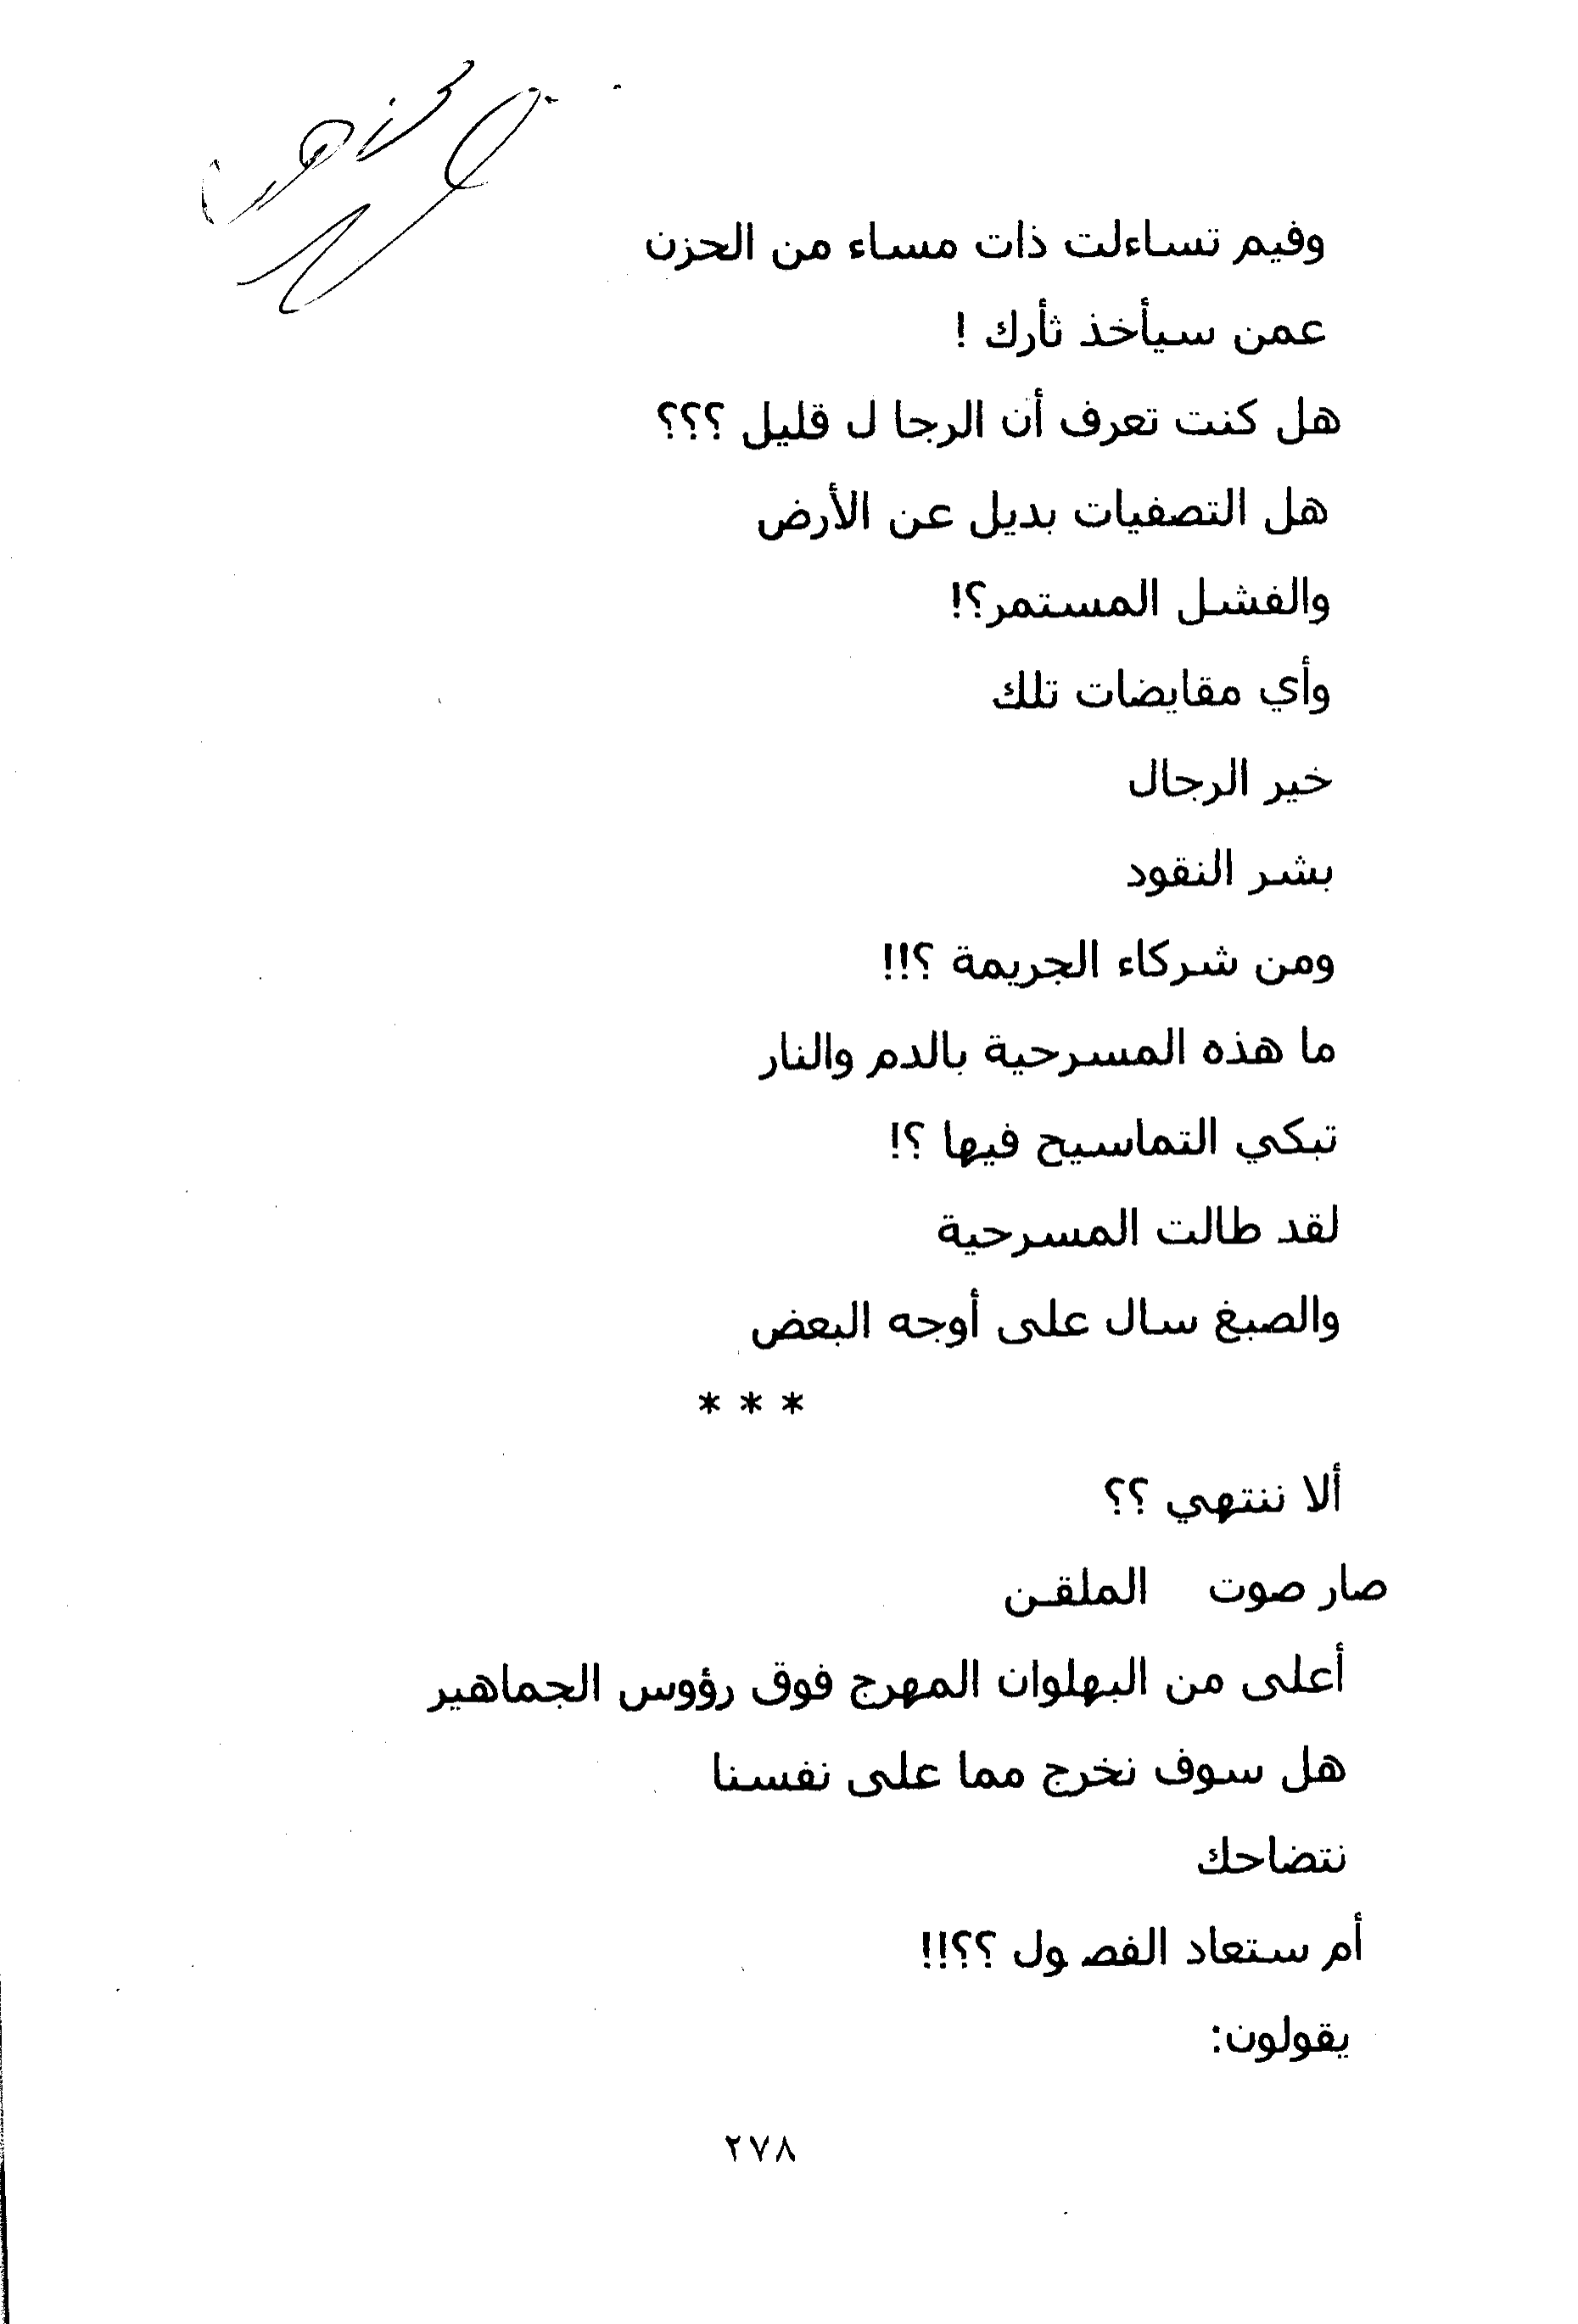 وفيم تساءلت ذات مساء من الحزن
عمن سيأخذ ثأرك !
هل كنت تعرف أن الرجا ل قليل ؟؟؟
هل التصفيات بديل عن الأرض
والفشل المستمر؟!
وأي مقايضات تلك
خير الرجال
بشر النقود
ومن شركاء الجريمة ؟!!
ما هذه المسرحية بالدم والنار
تبكي التماسيح فيها ؟!
لقد طالت المسرحية
والصبغ سال على أوجه البعض
* * *
ألا ننتهي ؟؟
صار صوت الملقـن
أعلى من البهلوان المهرج فوق رؤوس الجماهير
هل سوف نخرج مما على نفسنا
نتضاحك
أم ستعاد الفصـول ؟؟!!
يقولون:
٢٧٨